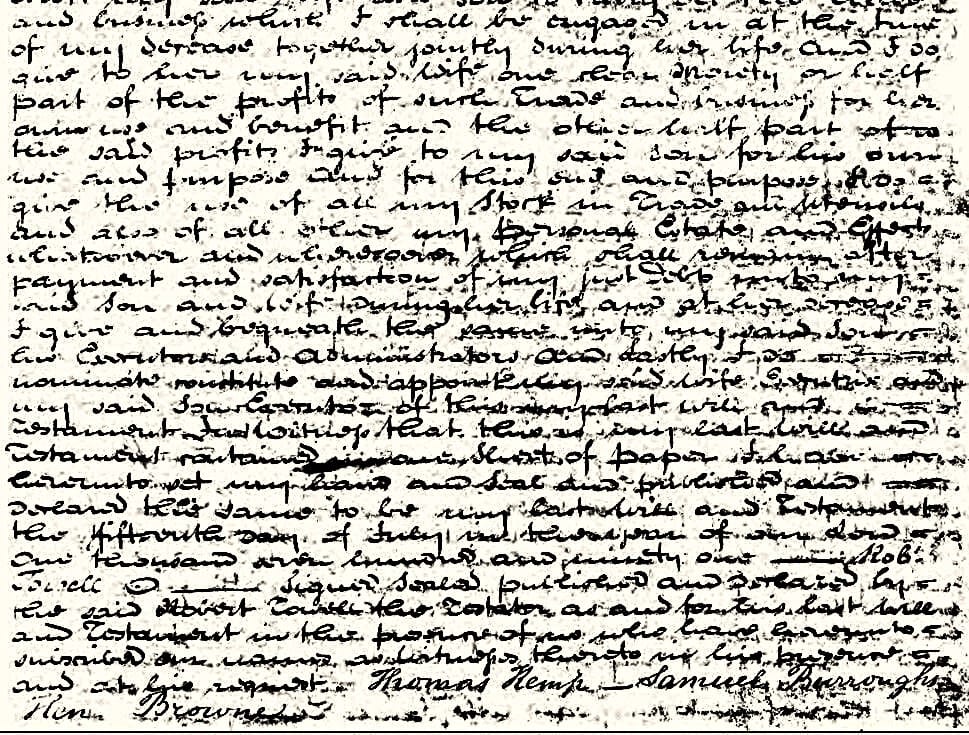 and business which I shall be engaged in at the time
of my decease together jointly during her life And I do
give to her my said wife one clear Moiety or half
part of the profits of such Trade and business for her
own use and benefit and the other half part of
the said profits I give to my said son for his own
use and purpose And for this end and purpose I do
give the use of all my Stock in Trade and Utensils
and also of all other my Personal Estate and Effects
whatsoever and wheresoever which shall remain after
payment and satisfaction of my just debts unto my
said Son and wife during her life and at her decease
I give and bequeath the same unto my said Son
his Executors and Administrators And lastly I do
nominate constitute and appoint my said wife Executrix and
my said Son Executor of this my last will and
Testament In Witness that this is my last will and
Testament contained in one Sheet of Paper I have
hereunto set my hand and Seal and published and
declared this same to be my last will and Testament
the fifteenth Day of July in the year of our Lord
One thousand seven hundred and ninety one Rob.
Towell Signed Sealed published and Declared by
the said Robert Towell the Testator as and for his last will
and Testament in the presence of us who have hereunto
subscribed our names as Witnesses thereto in his presence
and at his request. Thomas Kemp Samuel Burroughs
Hen. Browne